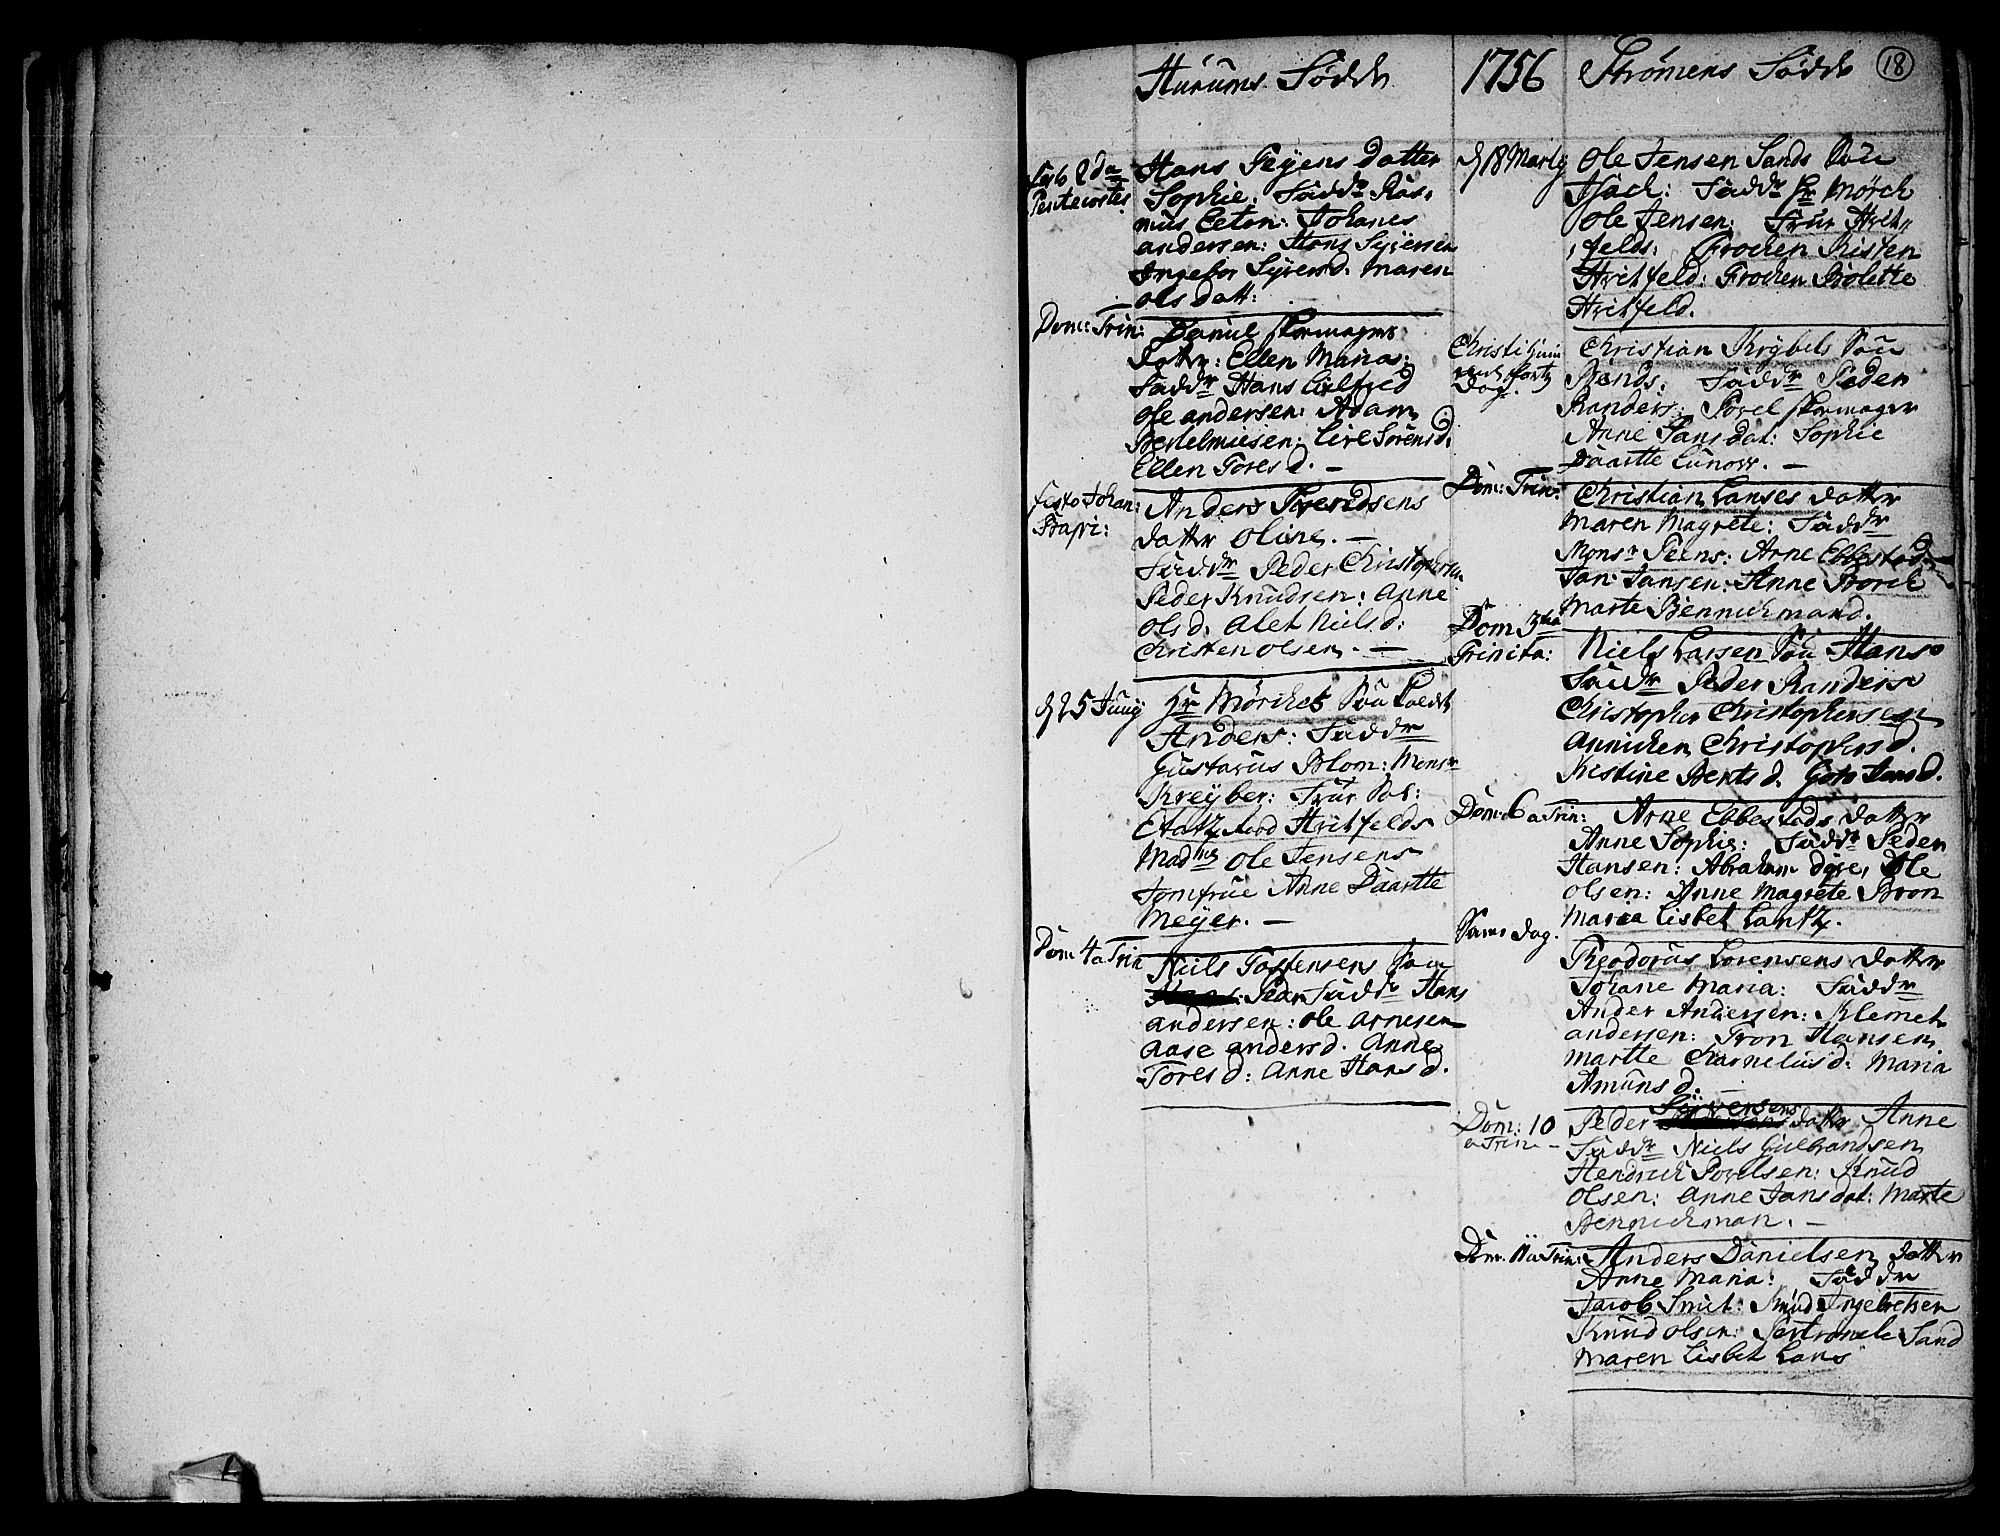 Hurums Födde
1756
Strömens Födde
18
Festo 2da
Pentecostes
Hans Feyens datter
Sophie. Faddr Ras-
mus Eeton: Johanes
andersen: Hans Syversen
Ingebor Syversd. Maren
ols datt:
Dom: Trin:
Daniel skomagers
dattr: Ellen Maria:
Faddr Hans
ole andersen: Adam
Bertelmiesen: Sørensd.
Ellen Toresd. —
festo Johan:
Anders Svendsens
dattr Oline. —
Faddr Peder Christophersen
Peder Knudsen: Anne
olsd. Alet Nielsd:
Christen olsen. —
d 25 Juny
Hr Mörchs Sön
Anders: Faddr
Gustavus Blom: Monsr
Kreyber: Frue
Hvitfelds
Madme ole Jensens
Jomfrue Anne Daartte
Meyer. —
Dom 4 a Trin
Niels Tostensens Sön
Peder Faddr Hans
andersen: ole arnesen
Aase andersd. Anne
Toresd: Anne Hansd.
d 18 Marty
Ole Jensen Sands Sön
Isach: Faddr Hr Mörch
Ole Jensen: Frue Hvit-
felds: Frochen Kisten
Hvitfeld: Frochen Bolette
Hvitfeld.
Christi Him
mels farts
Dag.
Christian Krybels Sön
Bends: Faddr Peder
Randers: Povel skomager
Anne Jansdat: Sophie
Daartte Lunow. —
Dom: Trin:
Christian Lanses dattr
Maren Magrete: Faddr
Monsr Peens: Arne Ebbestad
Jan Jansen: Anne Borch
Marte Bennichmand.
Dom 3tia
Trinita:
Niels Larsen Sön Hans
Faddr Peder Randers
Christopher Christophersen
Annichen Christophersd.
Kistine Bentsd. Jansd.
Dom: 6 a Trin:
Arne Ebbestads dattr
Anne Sophie: Faddr Peder
Hansen: Abraham dyre, Ole
olsen: Anne Magrete Bron
Maria Lisbet Lantz.
Sams dag.
Theodorus Lorensens dattr
Johane Maria: Faddr
Ander Andersen: Klemet
andersen: Tron Hansen
Martte Karnelius d: Maria
Amunsd.
Dom: 10
a Trin —
Syversens
Peder dattr Anne
Faddr Niels Gulbrandsen
Hendrich Povelsen: Knud
Olsen: Anne Jansdat: Marte
Bennichman. —
Dom. 11 a Trin:
Anders Danielsen dattr
Anne Maria: Faddr
Jacob Smit: Knud Ingebretsen
Knud olsen: Pertronele Sand
Maren Lisbet Lans